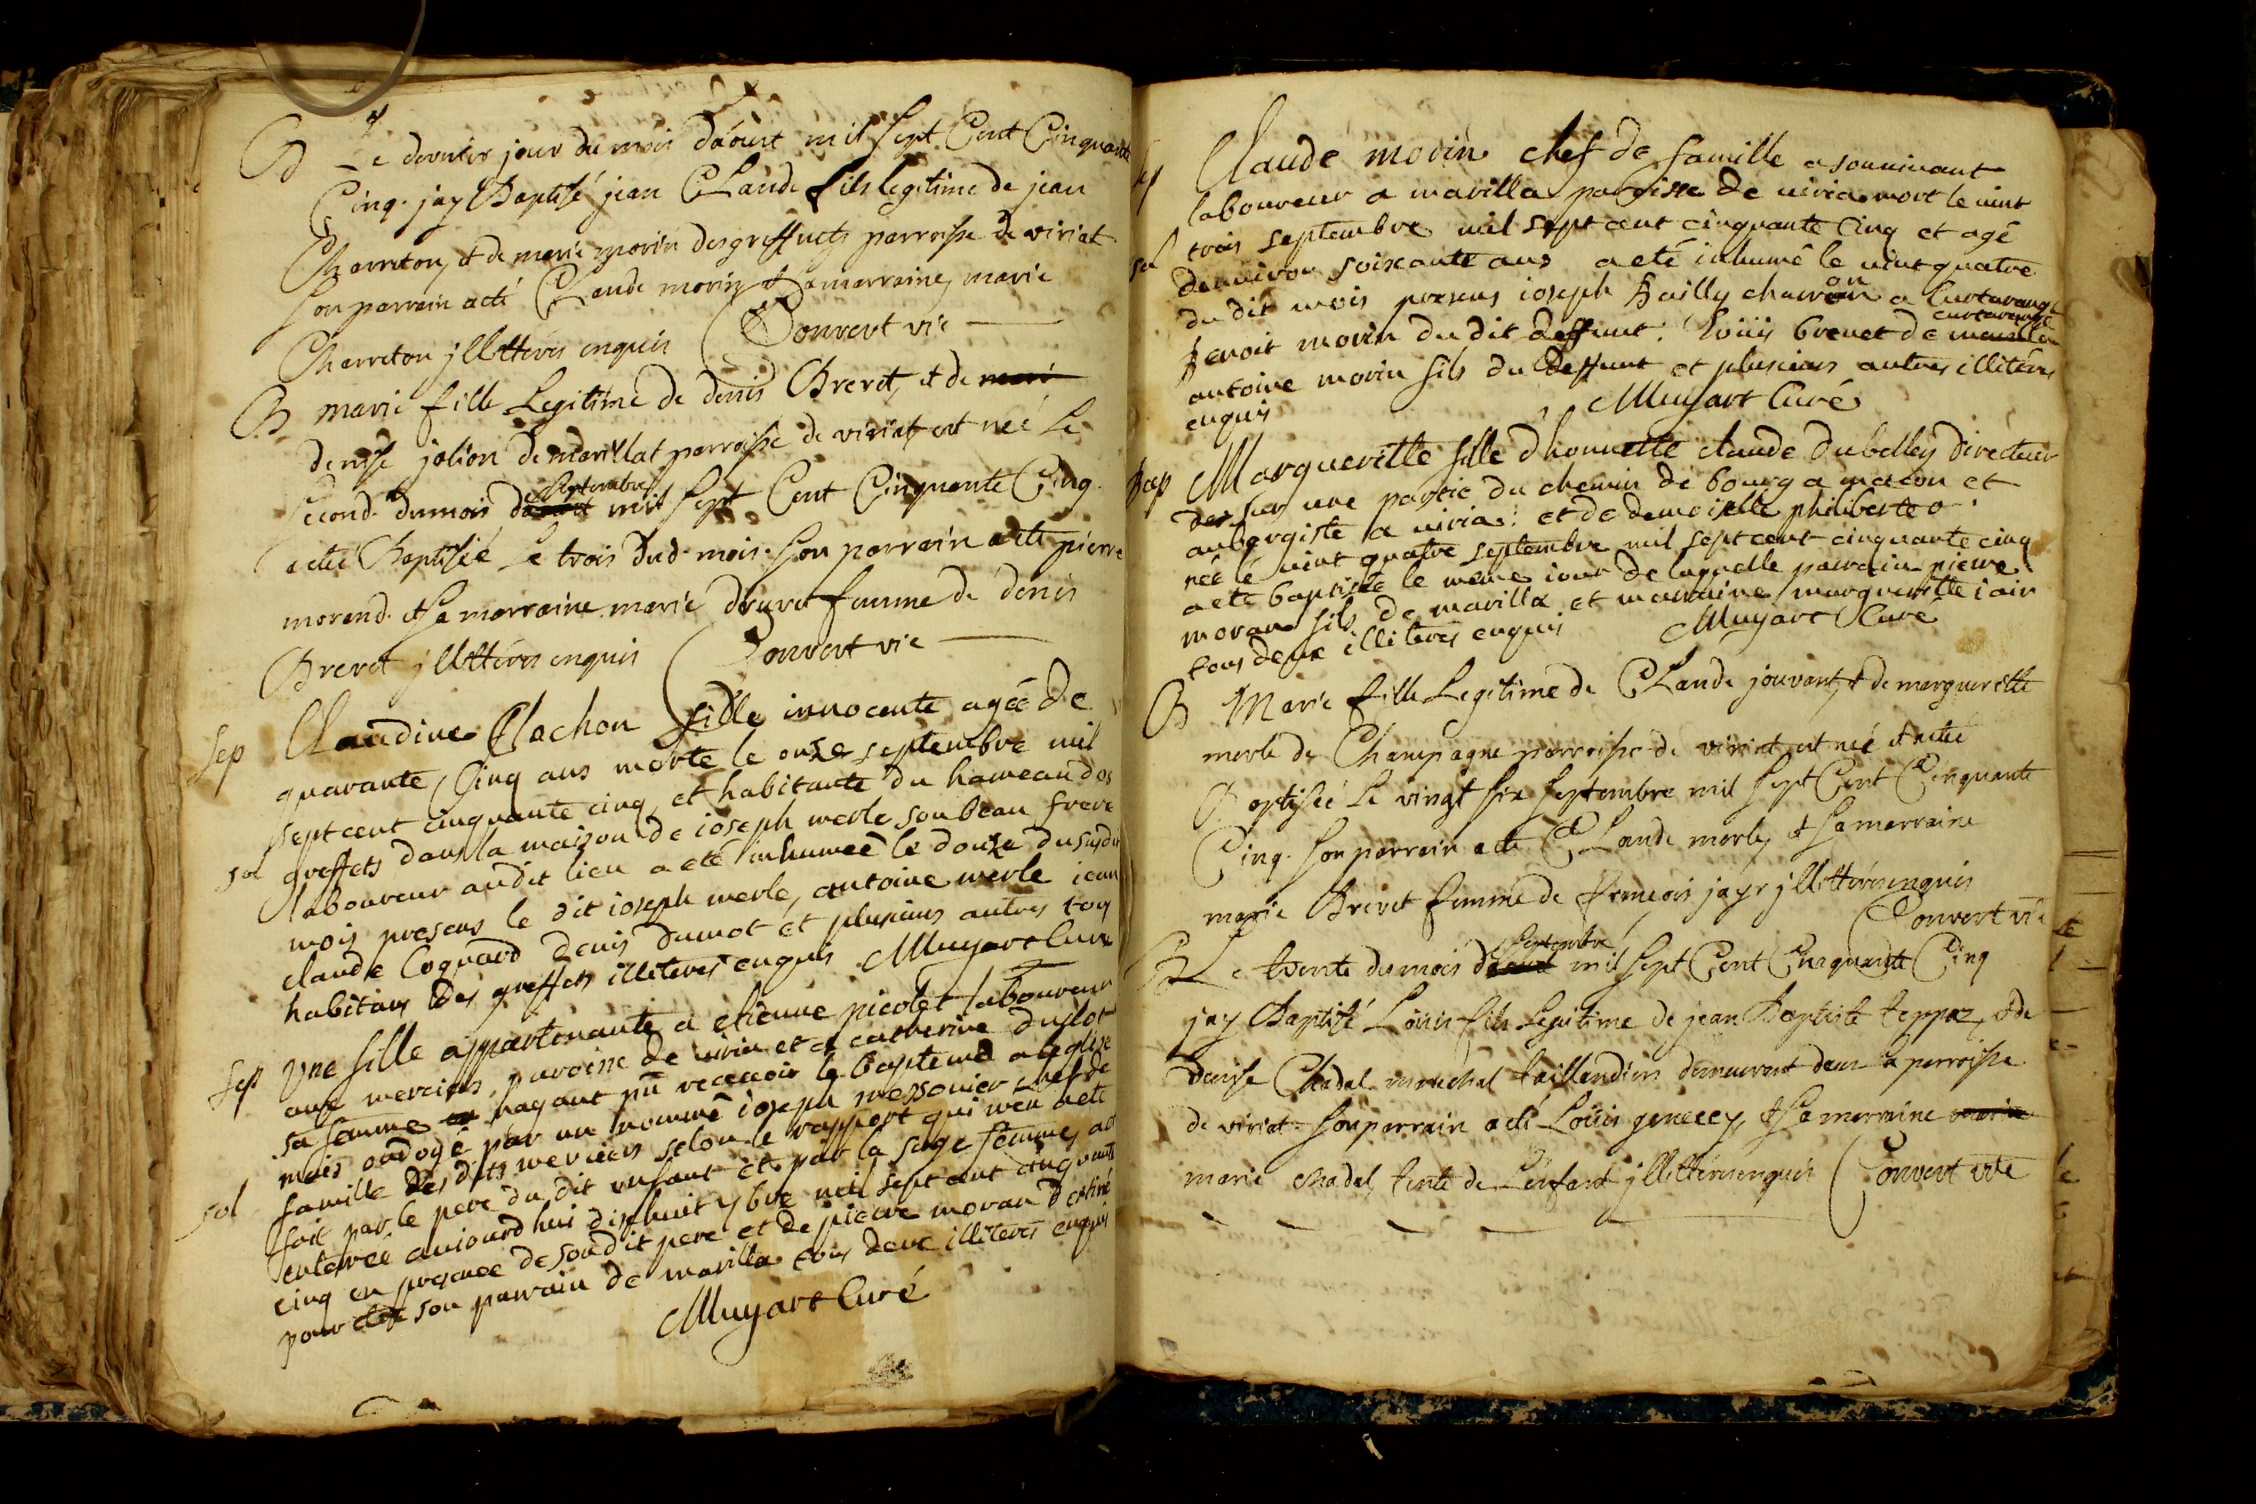 B Le dernier jour du mois daoust mil sept Cent Cinquante
Cinq. jay Baptisé jean CLaude fils legitime de jean
Charreton, et de marie morin des greffuets parroisse de viriat
son parrain a eté CLaude morin et sa marraine marie
Charreton jllitterés enquis Convert vic
B marie fille Legitime de denis Brevet, et de
denise jolion de marillat parroisse de viriat est neé Le
second. du mois septembre mil sept Cent Cinquante Cinq.
a eteé Baptiseé Le trois dud. mois. son parrain a eté pierre
morand. et sa marraine marie femme de denis
Brevet jllitterés enquis Convert vic
sep Claudine Clachon fille innocente ageé de
quarante Cinq ans morte le onze septembre mil
sept cent cinquante cinq et habitante du hameau des
sol greffets dans la maison de ioseph merle son beau frere
laboureur audit lieu a eté inhumeé le douze du susdit
mois presens le dit ioseph merle, antoine merle iean
claude Coquard denis dumot et plusieurs autres tous
habitans des greffets illiterés enquis Muyart Curé
sep Une fille appartenante a etienne picolet laboureur
aux merciers paroisse de viria et a catherine duflot
sa femme nayant pu recevoir le bapteme a leglise
mais ondoyé par un nommé ioseph messonier chef de
famille des dits merciers selon le rapport qui m'en a eté
sol fait par le pere du dit enfant et par la sage femme, a eté
enterreé auiourdhui dixhuit 7bre mil sept cent cinquante
cinq en presence de son dit pere et de pierre moran destiné
pour etre son parrain de marilla tous deux illiterés enquis
Muyart Curé
sep Claude morin chef de famille a son vivant
laboureur a marilla paroisse de viria mort le vint
trois septembre mil sept cent cinquante cinq et agé
sol denviron soixante ans a eté inhumé le vint quatre
du dit mois presens ioseph bailly charron a Curtarange
benoit morin du dit deffunt. loüis brevet de curtarange
antoine morin fils du deffunt et plusieurs autres illiterés
enquis Muyart Curé
bap Margueritte fille d'honnette claude dubelley directeur
des sur une partie du chemin de bourg a macon et
aubergiste a viria. et de demoiselle philiberte o.
neé le vint quatre septembre mil sept cent cinquante cinq
a eté baptiseé le meme iour de laquelle parrain pierre
moran fils de marilla et marraine margueritte iair
tous deux illiterés enquis Muyart Curé
B Marie fille Legitime de CLaude jouvant, et de margueritte
merle de Champagne parroisse de viriat est neé et a eté
Baptiseé Le vingt six septembre mil sept Cent Cinquante
Cinq. son parrain a eté CLaude merle, et sa marraine
marie Brevet femme de francois jayr jllitterés enquis
Convert vic
B Le trente du mois septembre mil sept Cent Cinquante Cinq
jay Baptisé Loüis fils Legitime de jean Baptiste teppaz, et de
denise Chadal marechal taillandier demeurant dans la parroisse
de viriat. son parrain a eté Loüis genecey, et sa marraine
marie chadal tente de L'enfant jllitterés enquis Convert vic